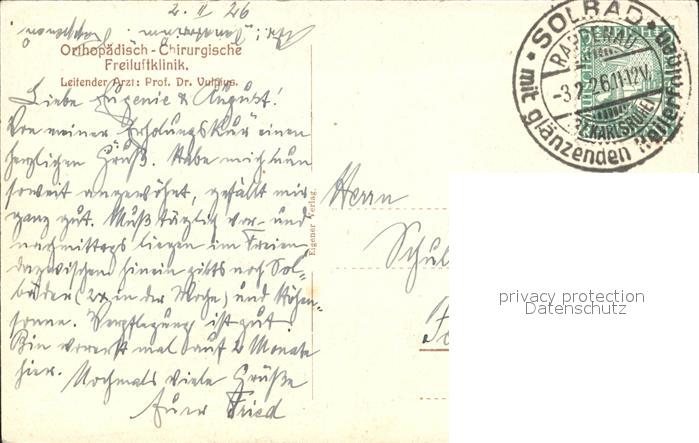 2. II 26
Orthopädisch-Chirurgische
Freiluftklinik.
Leitender Arzt: Prof. Dr. Vulpius.
Liebe Eugenie & August!
Von meiner Erholungskur einen
herzlichen Gruß. Habe mich nun
soweit angewöhnt, gefällt mir
ganz gut. Muß täglich vor- und
nachmittags liegen im Freien
dazwischen hinein gibts noch Sol-
bäder (2x in der Woche) und Höhen-
sonne. Verpflegung ist gut.
Bin vorerst mal auf 2 Monate
hier. Nochmals viele Grüße
Euer Fried
Eigener Verlag.
Herrn
Schul
SOLBAD
RAPPENAU
-3.2.26.11-12V.
KARLSRUHE
mit glänzenden Heilerfolgen
privacy protection
Datenschutz